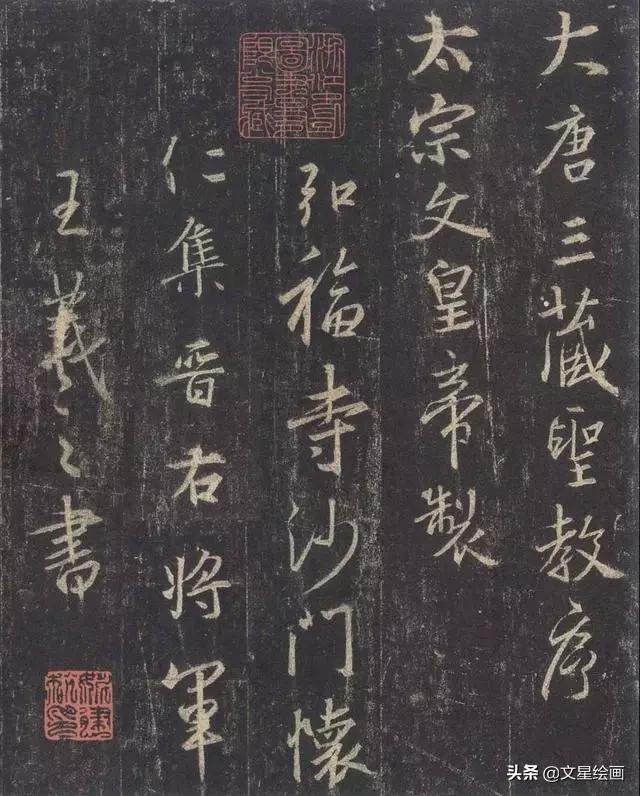 大唐三藏聖教序
太宗文皇帝製
弘福寺沙門懷
仁集晋右將軍
王羲之書
头条 @文星绘画